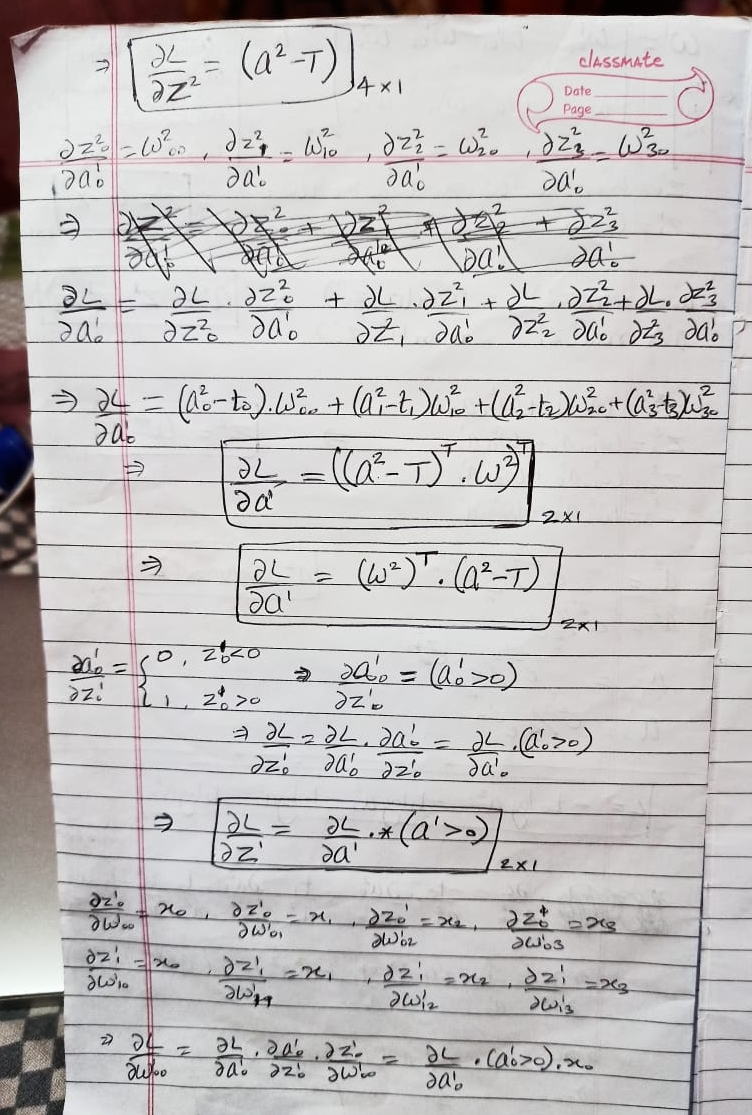 classmate
Date
Page
⇒ ∂L/∂Z² = (a² - T) 4×1
∂z₀²/∂a₀¹ = ω₀₀², ∂z₁²/∂a₀¹ = ω₁₀², ∂z₂²/∂a₀¹ = ω₂₀², ∂z₃²/∂a₀¹ = ω₃₀²
⇒ ∂z²/∂a₀¹ = ∂z₀²/∂a₀¹ + ∂z₁²/∂a₀¹ + ∂z₂²/∂a₀¹ + ∂z₃²/∂a₀¹
∂L/∂a₀¹ = ∂L/∂z₀² · ∂z₀²/∂a₀¹ + ∂L/∂z₁ · ∂z₁²/∂a₀¹ + ∂L/∂z₂² · ∂z₂²/∂a₀¹ + ∂L/∂z₃² · ∂z₃²/∂a₀¹
⇒ ∂L/∂a₀¹ = (a₀² - t₀).ω₀₀² + (a₁² - t₁)ω₁₀² + (a₂² - t₂)ω₂₀² + (a₃² - t₃)ω₃₀²
⇒ ∂L/∂a¹ = ((a² - T)ᵀ . ω²)ᵀ 2×1
⇒ ∂L/∂a¹ = (ω²)ᵀ . (a² - T) 2×1
∂a₀¹/∂z₀¹ = { 0, z₀¹ < 0 ⇒ ∂a₀¹/∂z₀¹ = (a₀¹ > 0)
1, z₀¹ > 0
⇒ ∂L/∂z₀¹ = ∂L/∂a₀¹ . ∂a₀¹/∂z₀¹ = ∂L/∂a₀¹ . (a₀¹ > 0)
⇒ ∂L/∂z¹ = ∂L/∂a¹ .* (a¹ > 0) 2×1
∂z₀¹/∂ω₀₀ = x₀, ∂z₀¹/∂ω₀₁¹ = x₁, ∂z₀¹/∂ω₀₂¹ = x₂, ∂z₀¹/∂ω₀₃¹ = x₃
∂z₁¹/∂ω₁₀¹ = x₀, ∂z₁¹/∂ω₁₁¹ = x₁, ∂z₁¹/∂ω₁₂¹ = x₂, ∂z₁¹/∂ω₁₃¹ = x₃
⇒ ∂L/∂ω₀₀¹ = ∂L/∂a₀¹ . ∂a₀¹/∂z₀¹ . ∂z₀¹/∂ω₀₀¹ = ∂L/∂a₀¹ . (a₀¹ > 0) . x₀